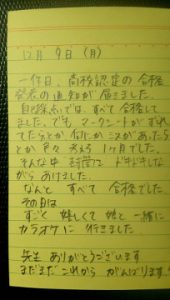 12月 9日 (月)
一昨日、高校認定の合格
発表の通知が届きました。
自己採点では、すべて合格して
ました。でも マークシートがずれ
てたらとか 何かミスがあったら
とか 色々 考える 1ヶ月でした。
そんな中 封筒を ドキドキしな
がら あけました。
なんと すべて 合格でした。
その日は
すごく 嬉しくて 姉と 一緒に
カラオケに 行きました。
先生 ありがとうございます
まだまだ これから がんばります。